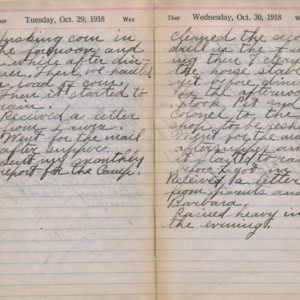 Ther Tuesday, Oct. 29, 1918 Wea
Husking corn in
the forenoon and
a while after din-
ner. Then we hauled
a load of
Then it started to
rain.
Received a letter
from Laura.
Went for the mail
after supper.
Sent my monthly
report for the Camp.
Ther Wednesday, Oct. 30, 1918
Cleaned the seed
drill in the
ing then I cleaned
the horse stable
out before dinner
In the afternoon
I took Pet and
Colonel to the
shop to be reshod
Went for the mail
after supper and
it started to rain
before I got in.
Received a letter
from parents and
Barbara.
Rained heavy in
the evening.